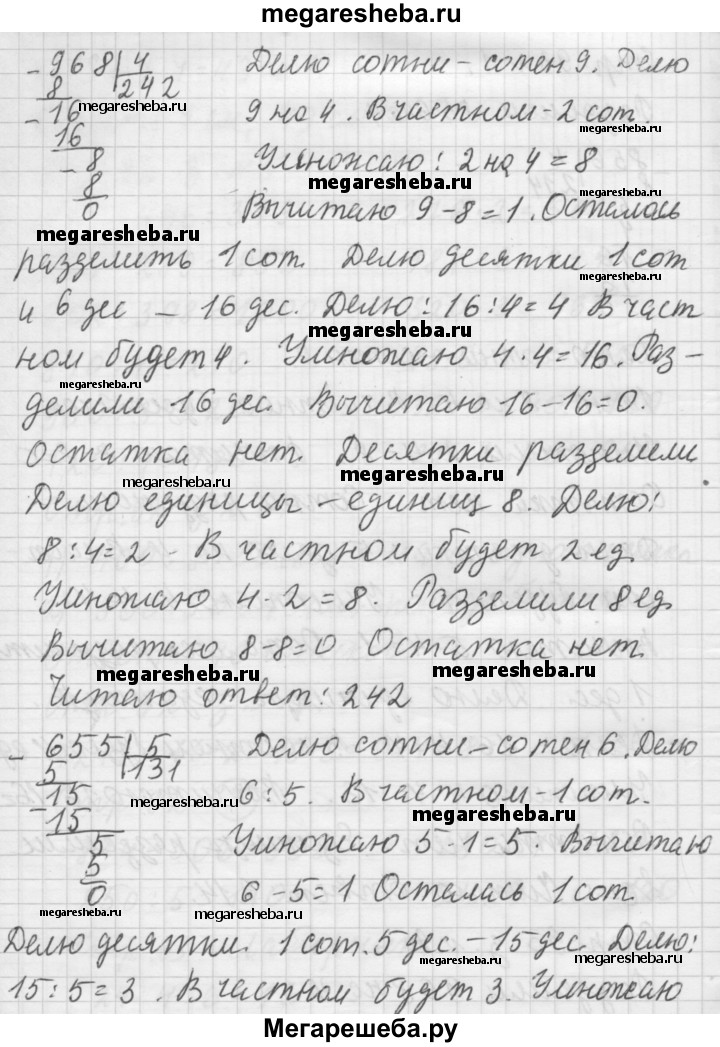 megaresheba.ru
- 968 | 4 Делю сотни - сотен 9. Делю
8 242
megaresheba.ru
- 16 9 на 4. В частном - 2 сот.
megaresheba.ru
16
- 8 Умножаю: 2 на 4 = 8
megaresheba.ru
8
0 Вычитаю 9 - 8 = 1. Осталась
megaresheba.ru
megaresheba.ru
разделить 1 сот. Делю десятки 1 сот
megaresheba.ru
и 6 дес - 16 дес. Делю: 16 : 4 = 4 В част
megaresheba.ru
ном будет 4. Умножаю 4 · 4 = 16. Раз-
megaresheba.ru
megaresheba.ru
делили 16 дес. Вычитаю 16 - 16 = 0.
Остатка нет. Десятки разделили
megaresheba.ru
megaresheba.ru
Делю единицы - единиц 8. Делю:
8 : 4 = 2 - В частном будет 2 ед.
Умножаю 4 · 2 = 8. Разделили 8 ед.
Вычитаю 8 - 8 = 0 Остатка нет.
megaresheba.ru
megaresheba.ru
Читаю ответ: 242
- 655 | 5 Делю сотни - сотен 6. Делю
5 131
- 15 6 : 5. В частном - 1 сот.
megaresheba.ru
megaresheba.ru
15
5 Умножаю 5 · 1 = 5. Вычитаю
5
0 6 - 5 = 1 Осталась 1 сот.
megaresheba.ru
megaresheba.ru
Делю десятки. 1 сот. 5 дес. - 15 дес. Делю:
megaresheba.ru
megaresheba.ru
15 : 5 = 3. В частном будет 3. Умножаю
megaresheba.ru
Мегарешеба.ру